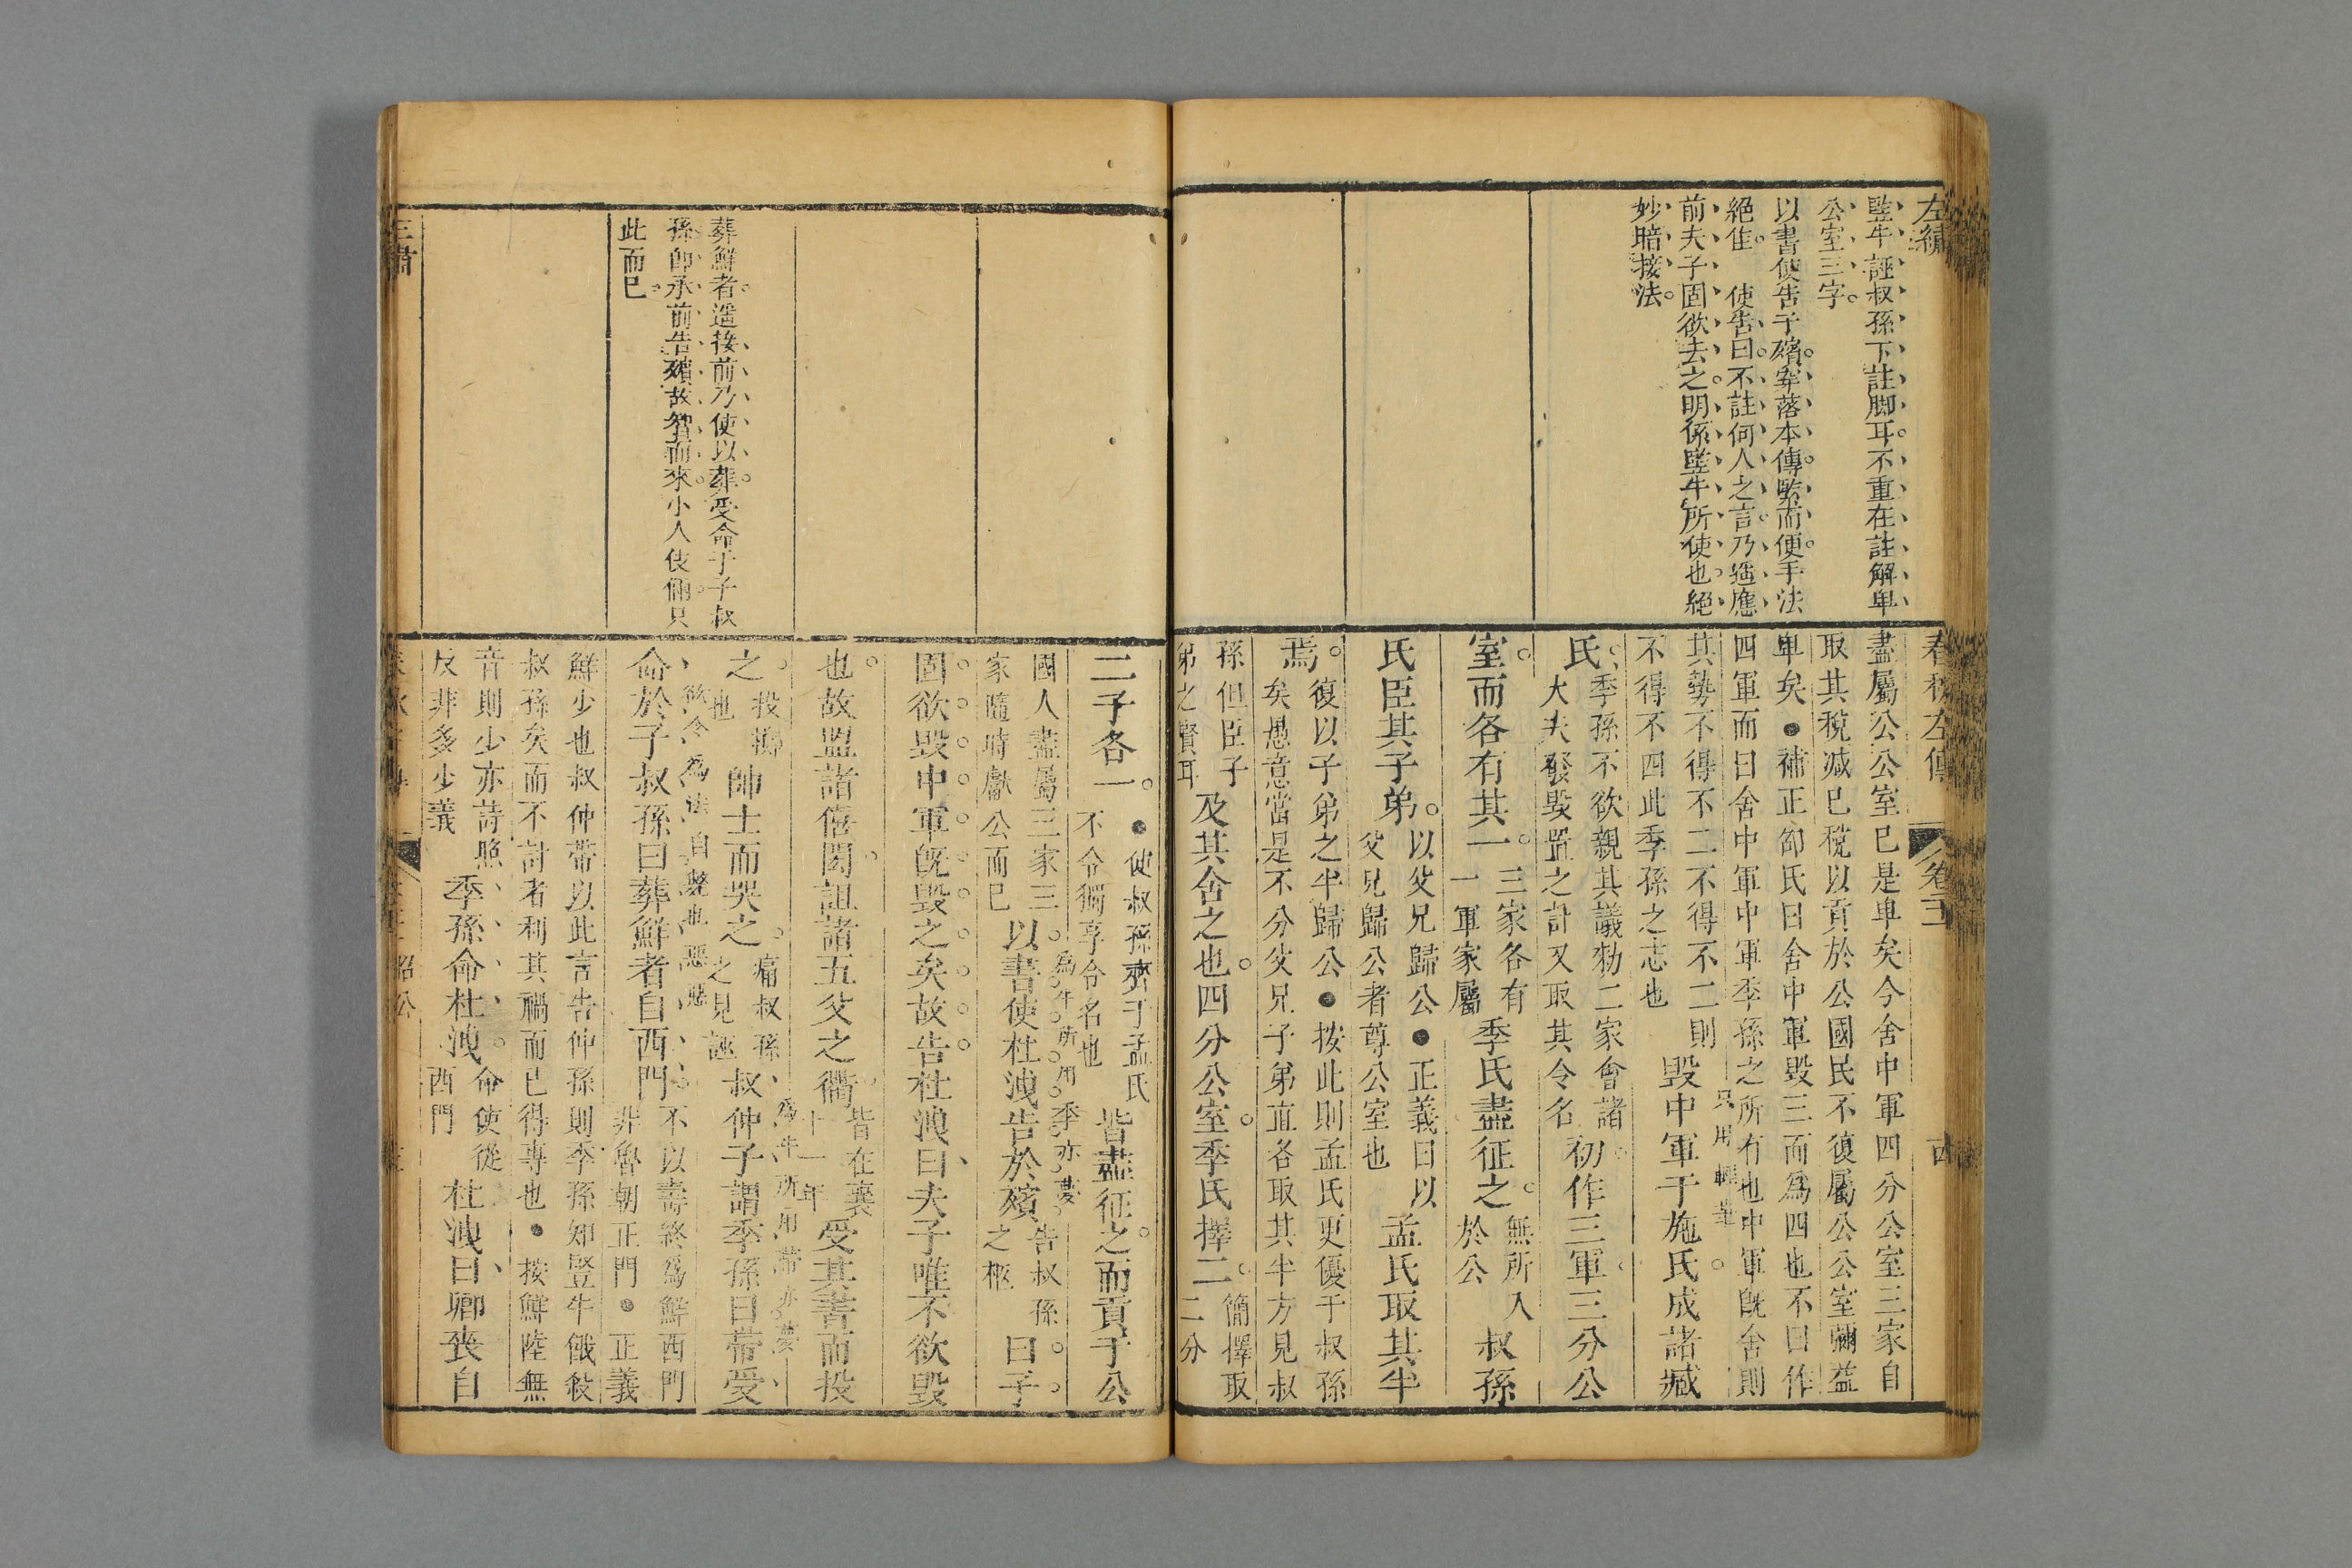 左繡
豎牛誣叔孫下註脚耳不重在註解卑
公室三字
以書使告子殯牢落本傳緊而便手法
絕佳　使告曰不註何人之言乃遥應
前夫子固欲去之明係豎牛所使也絕
妙暗接法
春秋左傳
卷三
盡屬公公室已是卑矣今舍中軍四分公室三家自
取其稅減已稅以貢於公國民不復屬公公室彌益
卑矣●補正卲氏曰舍中軍毀三而為四也不曰作
四軍而曰舍中軍中軍季孫之所有也中軍既舍則
其勢不得不二不得不二則
不得不四此季孫之志也
毀中軍于施氏成諸臧
氏
季孫不欲親其議勑二家會諸
大夫發毀置之計又取其令名
初作三軍三分公
室而各有其一
三家各有
一軍家屬
季氏盡征之
無所入
於公
叔孫
氏臣其子弟
以父兄歸公●正義曰以
父兄歸公者尊公室也
孟氏取其半
焉
復以子弟之半歸公●按此則孟氏更優于叔孫
矣愚意當是不分父兄子弟直各取其半方見叔
孫但臣子
弟之賢耳
及其舍之也四分公室季氏擇二
簡擇取
二分
葬鮮者遥接前乃使以葬受命于子叔
孫帥承前告殯故智而來小人伎倆只
此而已
二子各一
●使叔孫齊于孟氏
不令獨享令名也
皆盡征之而貢于公
國人盡屬三家三
家隨時獻公而已
以書使杜洩告於殯
為牛所用季亦夢
告叔孫
之柩
曰子
固欲毀中軍既毀之矣故告杜洩曰夫子唯不欲毀
也故盟諸僖閎詛諸五父之衢
皆在襄
十一年
受其書而投
之
投擲
也
帥士而哭之
痛叔孫
之見誣
叔仲子謂季孫曰帶受
為牛所用帶亦夢
命於子叔孫曰葬鮮者自西門
不以壽終為鮮西門
非魯朝正門●正義
鮮少也叔仲帶以此言告仲孫則季孫知豎牛餓殺
叔孫矣而不討者利其禍而已得專也●按鮮陸無
音則少亦詩照
反非多少義
季孫命杜洩
命使從
西門
杜洩曰卿喪自